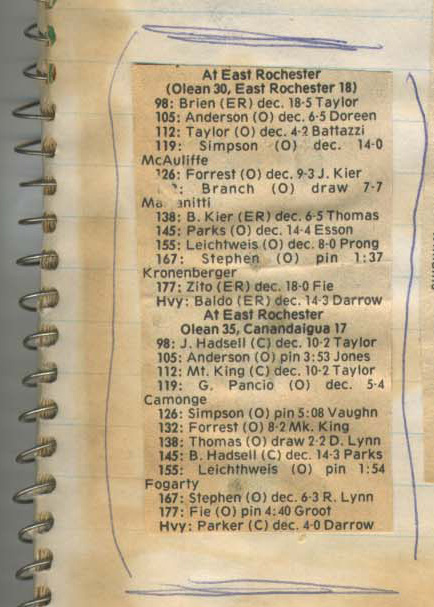 At East Rochester
(Olean 30, East Rochester 18)
98: Brien (ER) dec. 18-5 Taylor
105: Anderson (O) dec. 6-5 Doreen
112: Taylor (O) dec. 4-2 Battazzi
119: Simpson (O) dec. 14-0
McAuliffe
126: Forrest (O) dec. 9-3 J. Kier
Branch (O) draw 7-7
138: B. Kier (ER) dec. 6-5 Thomas
145: Parks (O) dec. 14-4 Esson
155: Leichtweis (O) dec. 8-0 Prong
167: Stephen (O) pin 1:37
Kronenberger
177: Zito (ER) dec. 18-0 Fie
Hvy: Baldo (ER) dec. 14-3 Darrow
At East Rochester
Olean 35, Canandaigua 17
98: J. Hadsell (C) dec. 10-2 Taylor
105: Anderson (O) pin 3:53 Jones
112: Mt. King (C) dec. 10-2 Taylor
119: G. Pancio (O) dec. 5-4
Camonge
126: Simpson (O) pin 5:08 Vaughn
132: Forrest (O) 8-2 Mk. King
138: Thomas (O) draw 2-2 D. Lynn
145: B. Hadsell (C) dec. 14-3 Parks
155: Leichthweis (O) pin 1:54
Fogarty
167: Stephen (O) dec. 6-3 R. Lynn
177: Fie (O) pin 4:40 Groot
Hvy: Parker (C) dec. 4-0 Darrow